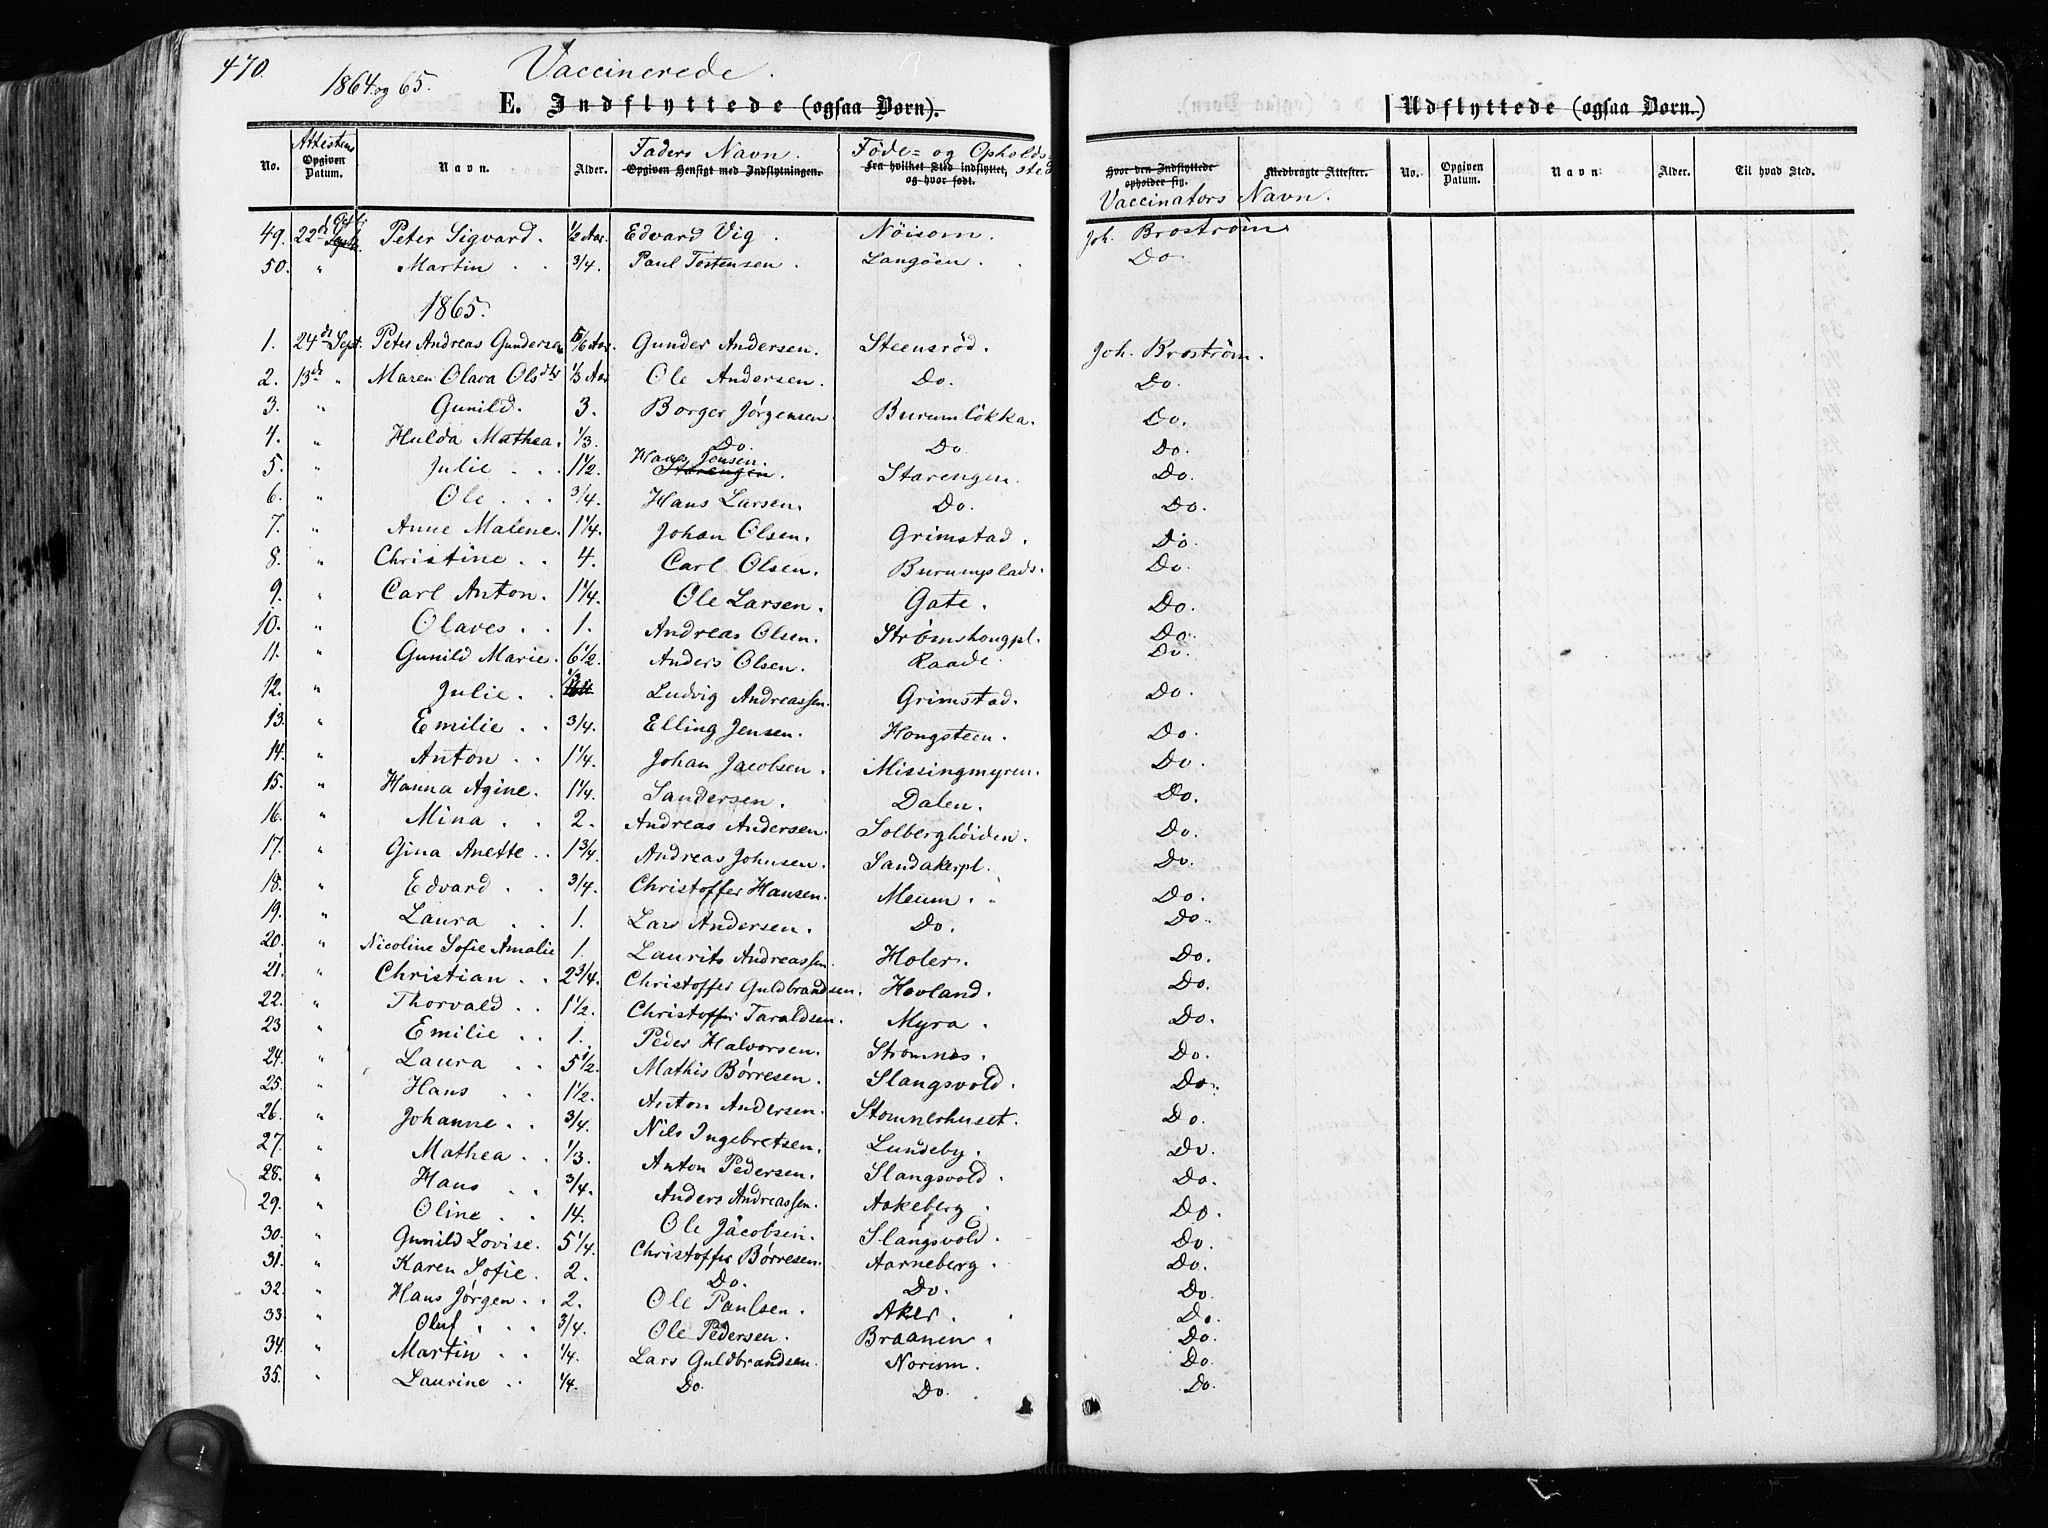 470.
1864 og 65.
Vaccinerede.
E. Indflyttede (ogsaa Børn).
Udflyttede (ogsaa Børn.)
No. Attestens Opgiven Datum. Navn. Alder. Faders Navn. Opgiven Hensigt med Indflytningen. Føde- og Opholdssted fra hvilket Sted indflyttet, og hvor født. Hvor den Indflyttede opholder sig. Vaccinators Navn. Medbragte Attester. No. Opgiven Datum. Navn: Alder. Til hvad Sted.
49. 22d Octbr Septbr Peter Sigvard. 1/2 Aar. Edvard Vig. Nöisom. Joh. Broström
50. " Martin . . 3/4. Paul Tostensen. Langöen. Do.
1865.
1. 24de Sept. Peter Andreas Gundersen 5/6 Aar. Gunder Andersen. Steensröd. Joh. Broström.
2. 13de " Maren Olava Olsdtr 1/3 Aar Ole Andersen. Do. Do.
3. " Gunild. 3. Borger Jørgensen. Burumlökka. Do.
4. " Hulda Mathea. 1/3. Do. Do. Do.
5. " Julie . . . 1 1/2. Hans Jensen. Starengen. Starengen. Do.
6. " Ole . . . 3/4. Hans Larsen. Do. Do.
7. " Anne Malene. 1 1/4. Johan Olsen. Grimstad. Do.
8. " Christine . . 4. Carl Olsen. Burumplads. Do.
9. " Carl Anton. 1 1/4. Ole Larsen. Gate. Do.
10. " Olaves . . 1. Andreas Olsen. Strømshougpl. Do.
11. " Gunild Marie. 6 1/2. Anders Olsen. Raade. Do.
12. " Julie . . 1/3 Ludvig Andreassen. Grimstad. Do.
13. " Emilie . . 3/4. Elling Jensen. Hougsteen. Do.
14. " Anton . . 1 1/4. Johan Jacobsen. Missingmyren. Do.
15. " Hanna Agine. 1 1/4. Sandersen. Dalen. Do.
16. " Mina . . 2. Andreas Andersen. Solberghöiden. Do.
17. " Gina Anette . . 1 3/4. Andreas Johnsen. Sandakerpl. Do.
18. " Edvard . . 3/4. Christoffer Hansen. Meum. Do.
19. " Laura . . 1. Lars Andersen. Do. Do.
20. " Nicoline Sofie Amalie 1. Laurits Andreassen. Holer. Do.
21. " Christian . . 2 3/4. Christoffer Guldbrandsen. Hovland. Do.
22. " Thorvald . . 1 1/2. Christoffer Taraldsen. Myra. Do.
23 " Emilie . . 1. Peder Halvorsen. Strömnes. Do.
24. " Laura . . 5 1/2. Mathis Børresen. Slangsvold. Do.
25. " Hans . . 1 1/2. Anton Andersen. Stomnerhuset. Do.
26. " Johanne . . 3/4. Nils Ingebretsen. Lundeby. Do.
27. " Mathea . . 1/3. Anton Pedersen. Slangsvold. Do.
28. " Hans . . 3/4. Anders Andreassen. Askeberg. Do.
29. " Oline . . 14. Ole Jacobsen. Slangsvold. Do.
30. " Gunild Lovise. 5 1/4. Christoffer Børresen. Aarneberg. Do.
31. " Karen Sofie. 2. Do. Do. Do.
32. " Hans Jørgen . . 2. Ole Paulsen. Aker. Do.
33. " Oluf . . . 3/4. Ole Pedersen. Braanen. Do.
34. " Martin . . 1/4. Lars Guldbrandsen. Norum. Do.
35. " Laurine . . 1/4. Do. Do. Do.